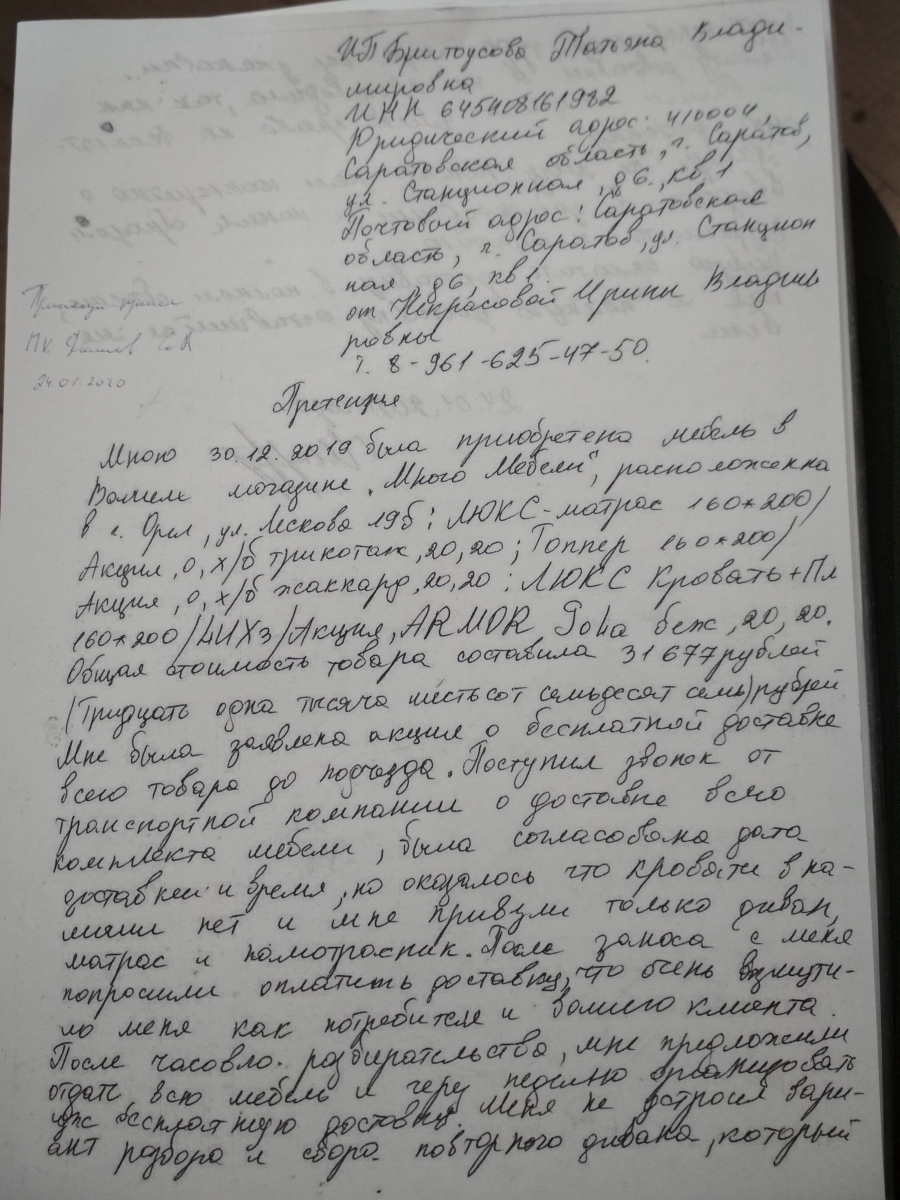 ИП Бритоусова Татьяна Влади-
мировна
ИНН 645408161982
Юридический адрес: 410004,
Саратовская область, г. Саратов,
ул. Станционная, д 6., кв. 1
Почтовый адрес: Саратовская
область, г. Саратов, ул. Станцион
ная, д6, кв 1.
от Некрасовой Ирины Владими
ровны
т. 8-961-625-47-50.
24.01.2020
Претензия
Мною 30.12.2019 была приобретена мебель в
Вашем магазине „Много Мебели", расположенна
в г. Орел, ул. Лескова 19б: ЛЮКС-матрас 160*200/
Акция, 0, х/б трикотаж, 20, 20; Топпер 160*200/
Акция, 0, х/б жаккард, 20, 20; ЛЮКС Кровать+Пм
160*200/ /Акция, ARMOR беж, 20, 20.
Общая стоимость товара составила 31677 рублей
(Тридцать одна тысяча шестьсот семьдесят семь) рублей
Мне была заявлена акция о бесплатной доставке
всего товара до подъезда. Поступил звонок от
транспортной компании о доставке всего
комплекта мебели, была согласована дата
доставки и время, но оказалось что кровати в на-
личии нет и мне привезли только диван,
матрас и наматрасник. После заноса с меня
попросили оплатить доставку, что очень возмути-
ло меня как потребителя и вашего клиента.
После часовло. разбирательства, мне предложили
отдать всю мебель и через неделю организовать
уже бесплатную доставку. Меня не устроил вари-
ант разбора и сбора повторного дивана, который